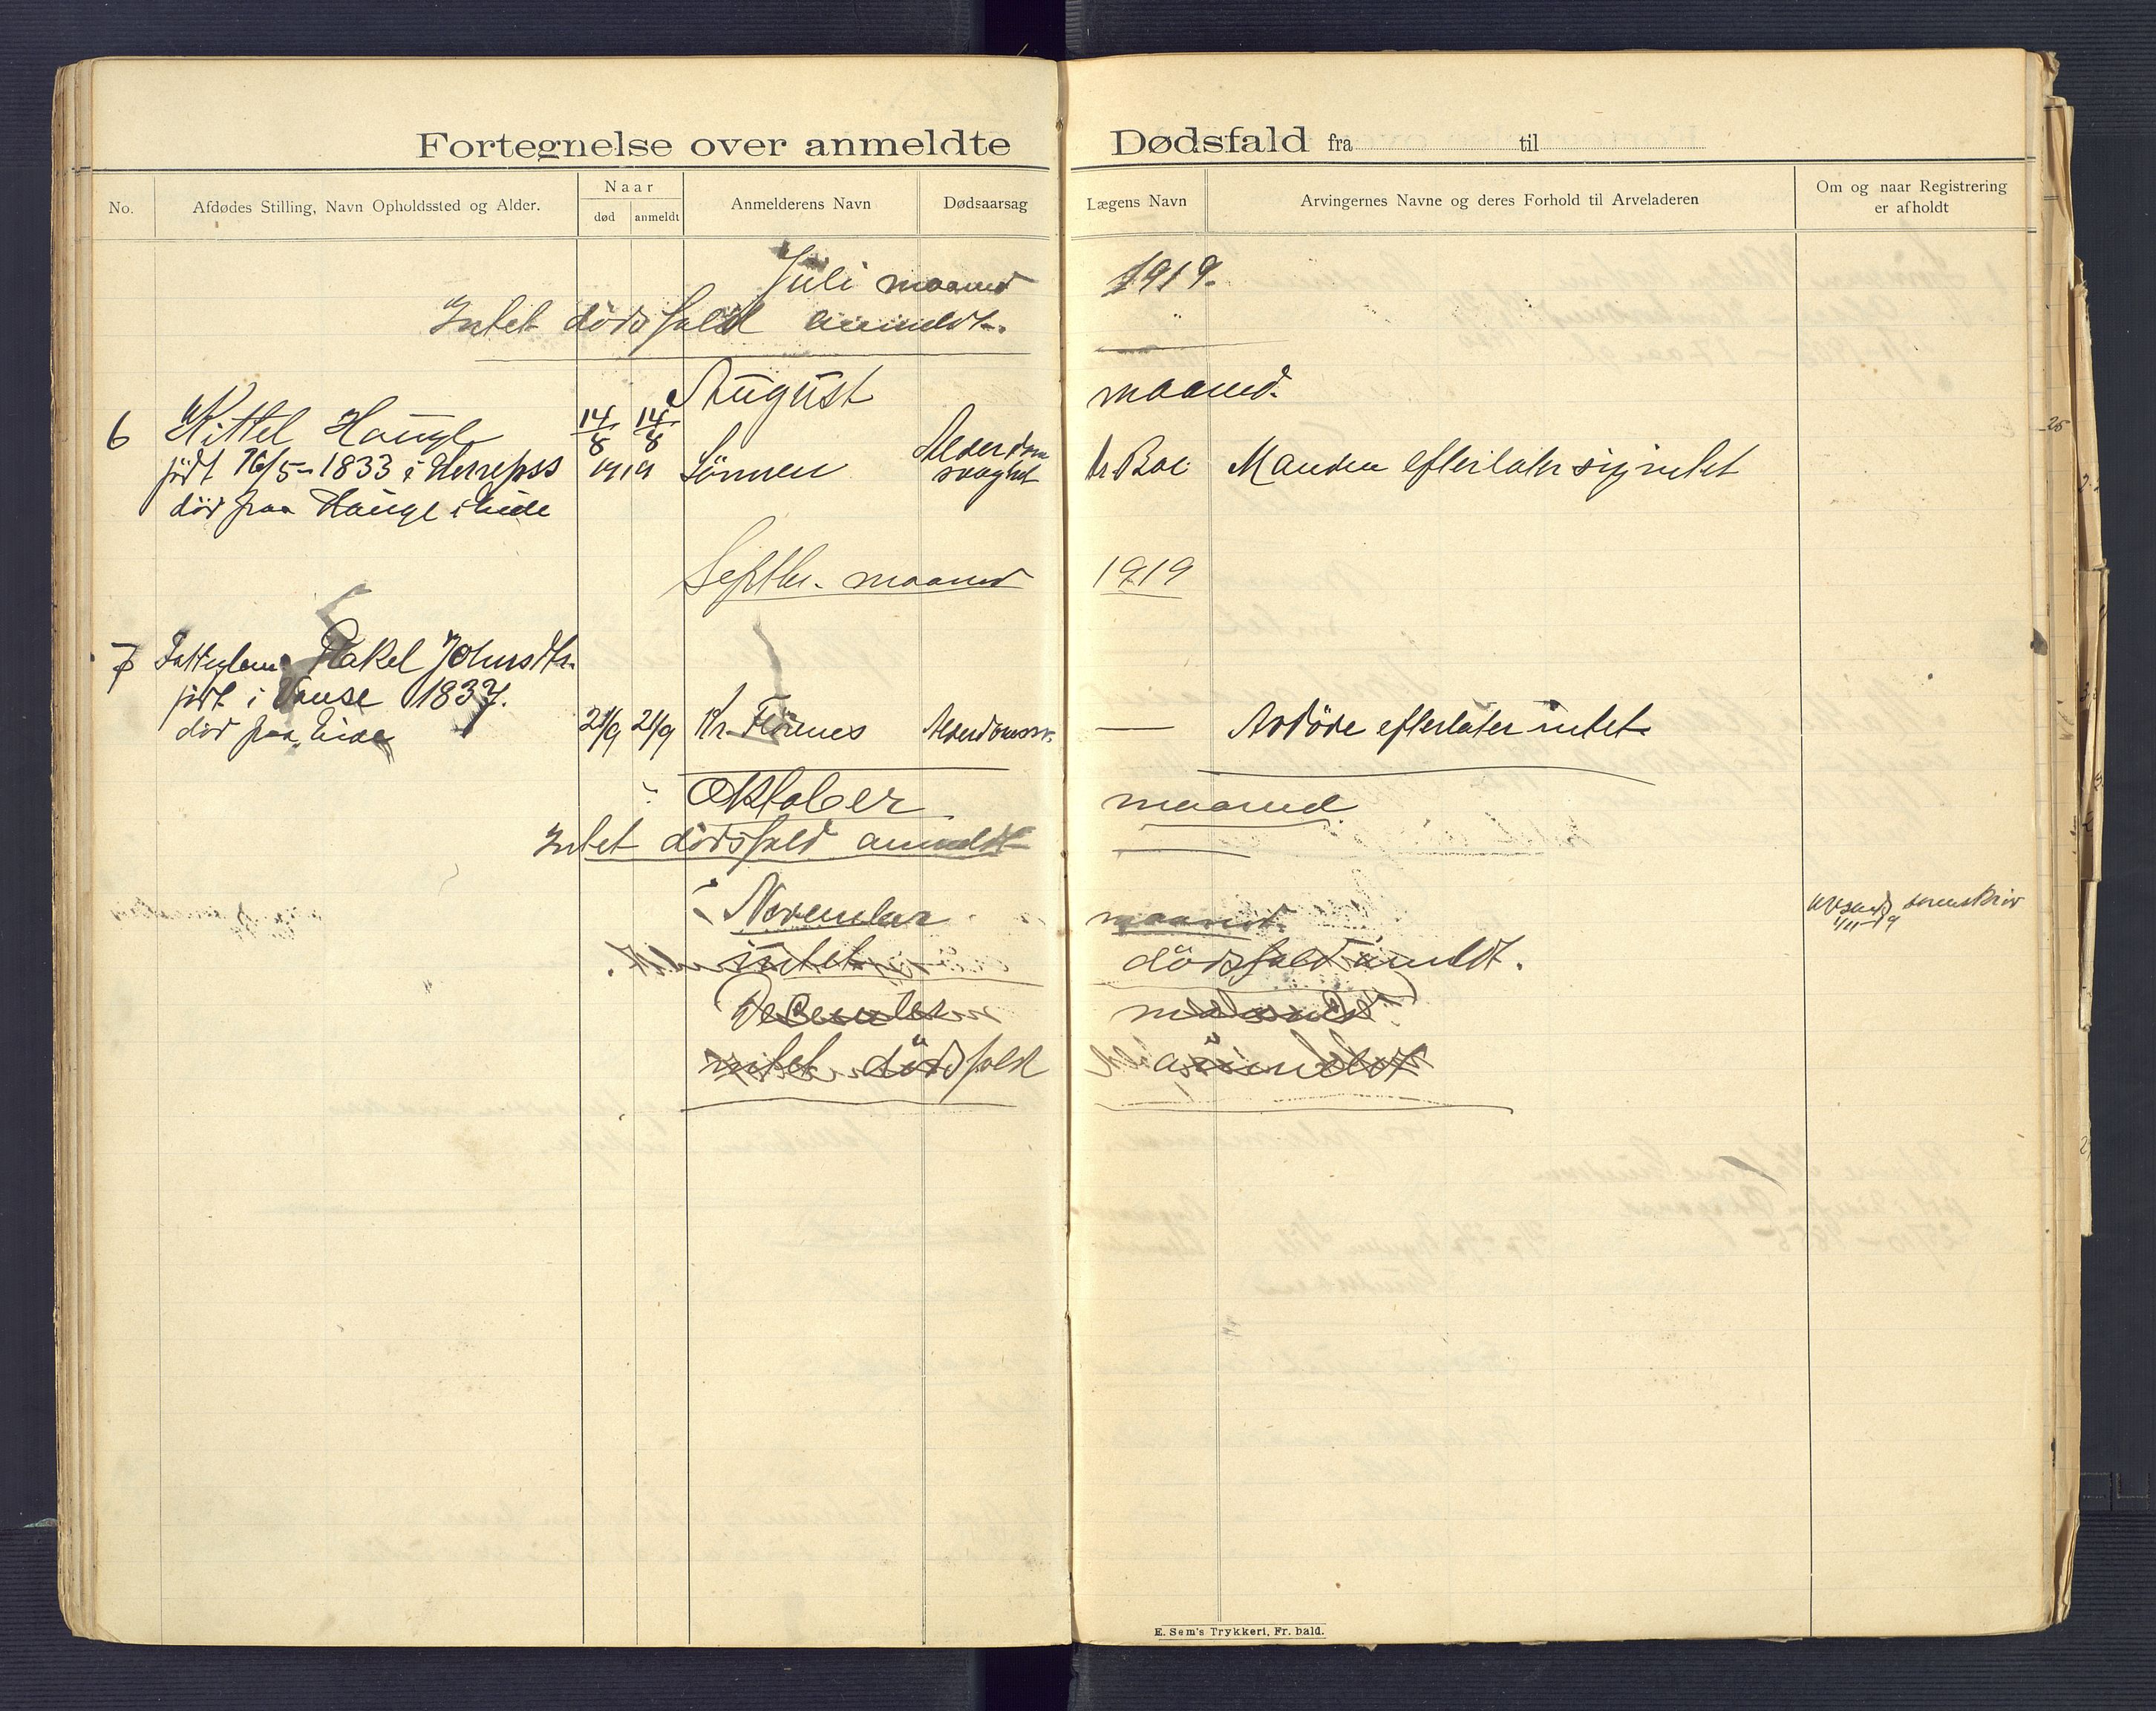 Fortegnelse over anmeldte Dødsfald fra til
No. Afdødes Stilling, Navn Opholdssted og Alder. Naar død anmeldt Anmelderens Navn Dødsaarsag Lægens Navn Arvingernes Navne og deres Forhold til Arveladeren Om og naar Registrering er afholdt
Juli maaned 1919.
Intet dödsfald anmeldt.
August maaned.
6 Kittel Hauge 14/8 14/8 Alderdom
födt 16/5 - 1833 i 1919 Sönnen svaghet dr. Boe Manden efterlater sig intet
död paa Hauge i Eide
Septbr. maaned 1919
7 Fattiglem Rakel Johnsdtr.
födt i Vanse 1837.
död paa Eide 21/9 21/9 Kr. Hörnes Alderdomssv. — Avdöde efterlater intet.
Oktober maaned
Intet dödsfald anmeldt
November maaned. avsendt sorenskriv
1/11 19
intet dödsfald anmeldt.
December maaned
intet dödsfald anmeldt
E. Sem's Trykkeri, Fr. hald.